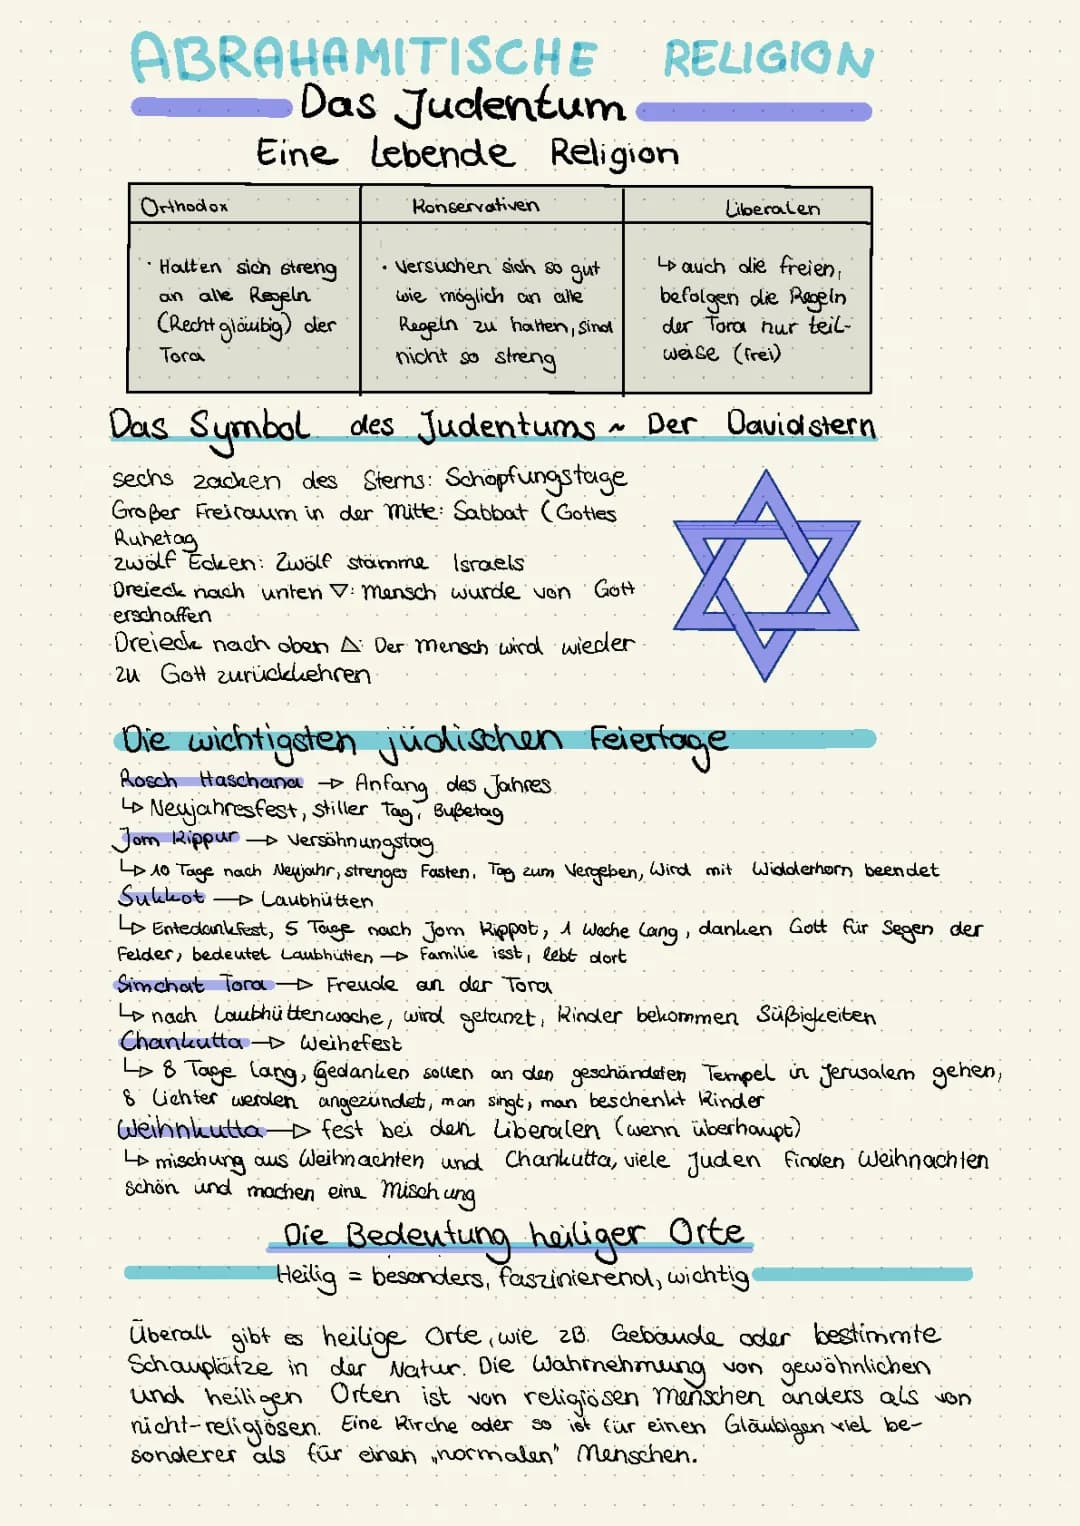 ABRAHAMITISCHE RELIGION
Das Judentum
Eine Lebende Religion
Orthodox
· Halten sich streng
an alle Regeln
(Rechtgläubig) der
Tora
Konservativen
· Versuchen sich so gut
wie möglich an alle
Regeln zu halten, sind
nicht so streng
Liberalen
↳ auch die freien,
befolgen die Regeln
der Tora nur teil-
weise (frei)
Das Symbol des Judentums ~ Der Davidstern
sechs zacken des Sterns: Schöpfungstage
Großer Freiraum in der Mitte: Sabbat (Gottes
Ruhetag
zwölf Ecken: Zwölf stämme Israels
Dreieck nach unten ▽: Mensch wurde von Gott
erschaffen
Dreieck nach oben △: Der Mensch wird wieder
zu Gott zurückkehren
Die wichtigsten jüdischen Feiertage
Rosch Haschana → Anfang des Jahres
↳ Neujahresfest, stiller Tag, Bußetag
Jom Kippur → Versöhnungstag
↳ 10 Tage nach Neujahr, strenges Fasten, Tag zum Vergeben, Wird mit Widderhorn beendet
Sukkot → Laubhütten
↳ Entedankfest, 5 Tage nach Jom Kippot, 1 Woche Lang, danken Gott für Segen der
Felder, bedeutet Laubhütten → Familie isst, lebt dort
Simchat Tora → Freude an der Tora
↳ nach Laubhüttenwoche, wird getanzt, Kinder bekommen Süßigkeiten
Chankutta → Weihefest
↳ 8 Tage lang, Gedanken sollen an den geschändeten Tempel in Jerusalem gehen,
8 Lichter werden angezündet, man singt, man beschenkt Kinder
Weihnkutta → fest bei den Liberalen (wenn überhaupt)
↳ mischung aus Weihnachten und Chankutta, viele Juden finden Weihnachten
schön und machen eine Mischung
Die Bedeutung heiliger Orte
Heilig = besonders, faszinierend, wichtig
Überall gibt es heilige Orte, wie zB. Gebäude oder bestimmte
Schauplätze in der Natur. Die Wahrnehmung von gewöhnlichen
und heiligen Orten ist von religiösen Menschen anders als von
nicht-religiösen. Eine Kirche oder so ist für einen Gläubigen viel be-
sonderer als für einen „normalen" Menschen.